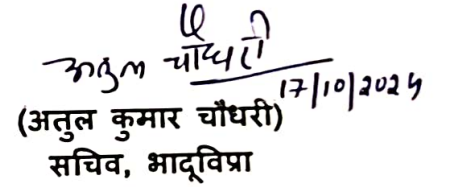 अतुल चौधरी
17/10/2025
(अतुल कुमार चौधरी)
सचिव, भादूविप्रा